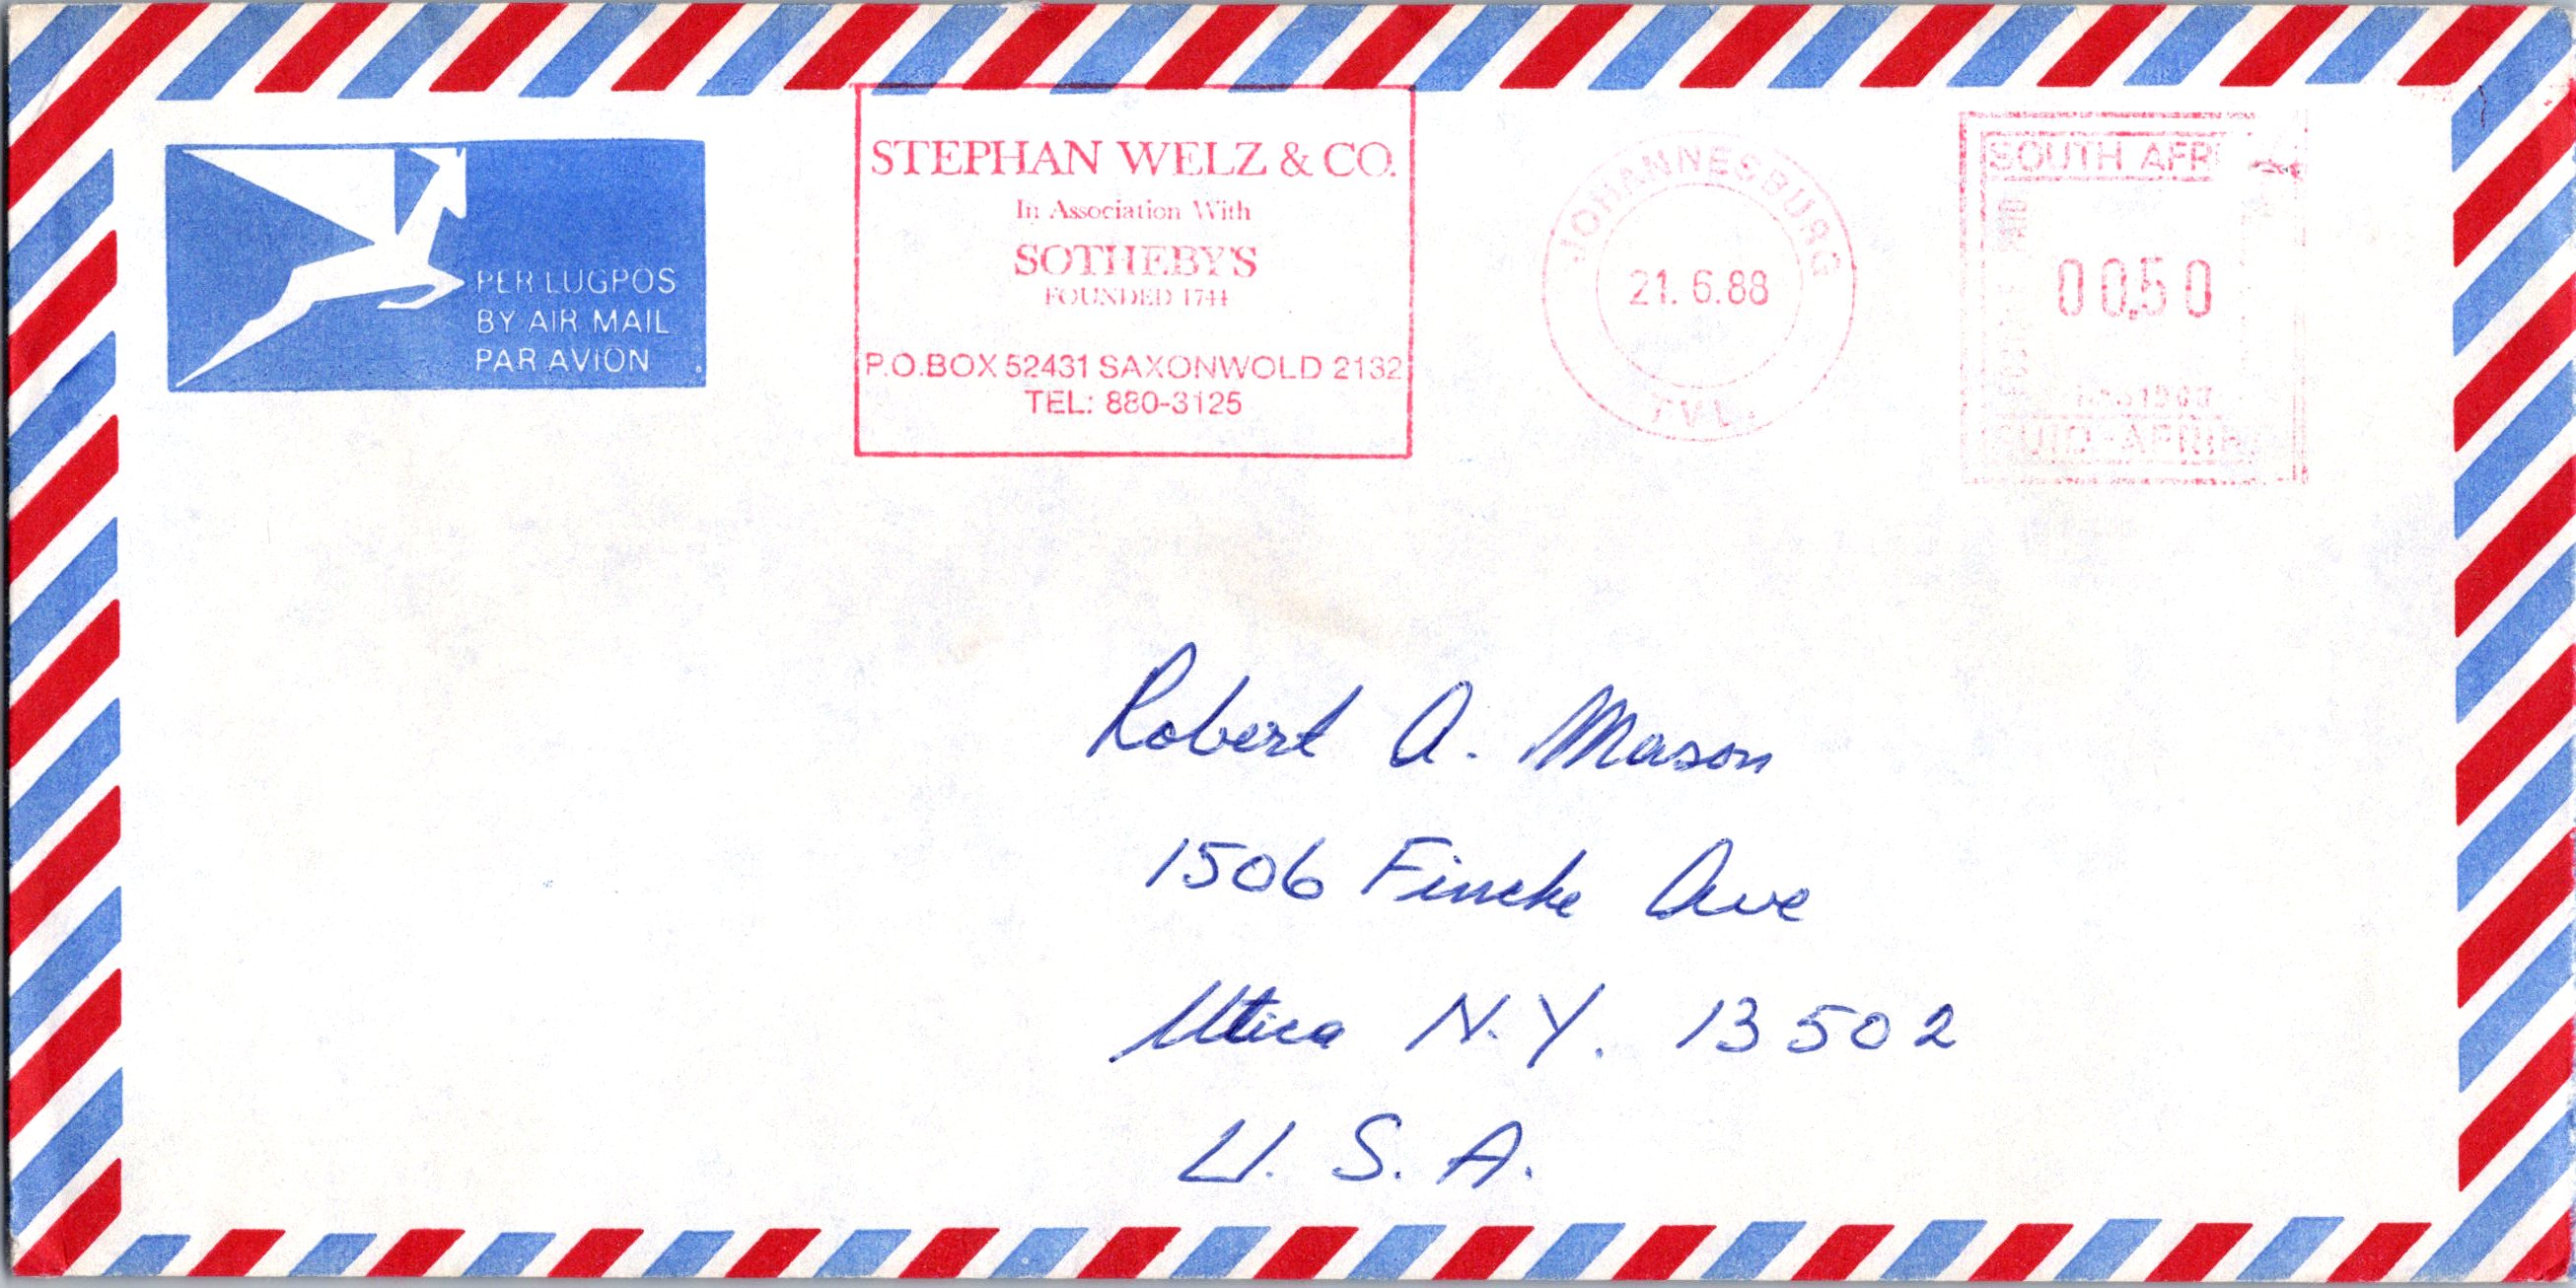 PER LUGPOS
BY AIR MAIL
PAR AVION
STEPHAN WELZ & CO.
In Association With
SOTHEBY'S
FOUNDED 1744
P.O.BOX 52431 SAXONWOLD 2132
TEL: 880-3125
JOHANNESBURG
21. 6.88
TVL.
SOUTH AFR
00.50
SUID-AFRIK
Robert A. Mason
1506 Fincke Ave
Utica N.Y. 13502
U. S. A.